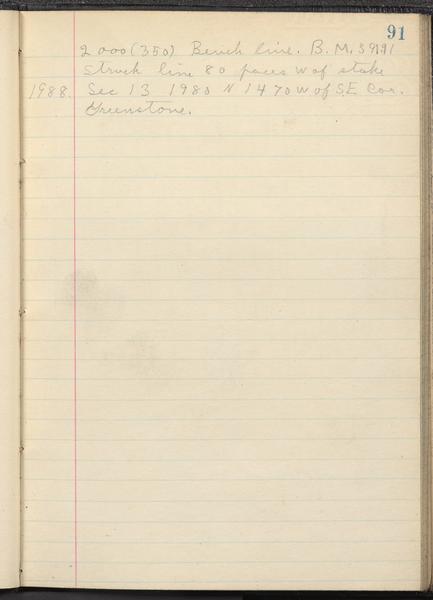 91
2000 (350) Bench line. B.M.
Struck line 80 paces W of stake
1988. Sec 13 1980 N 1470 W of S.E. Cor.
Greenstone.